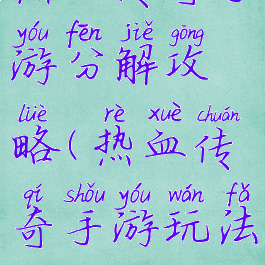 yóu fēn jiě gōng
游分解攻
lüè rè xuè chuán
略(热血传
qí shǒu yóu wán fǎ
奇手游玩法